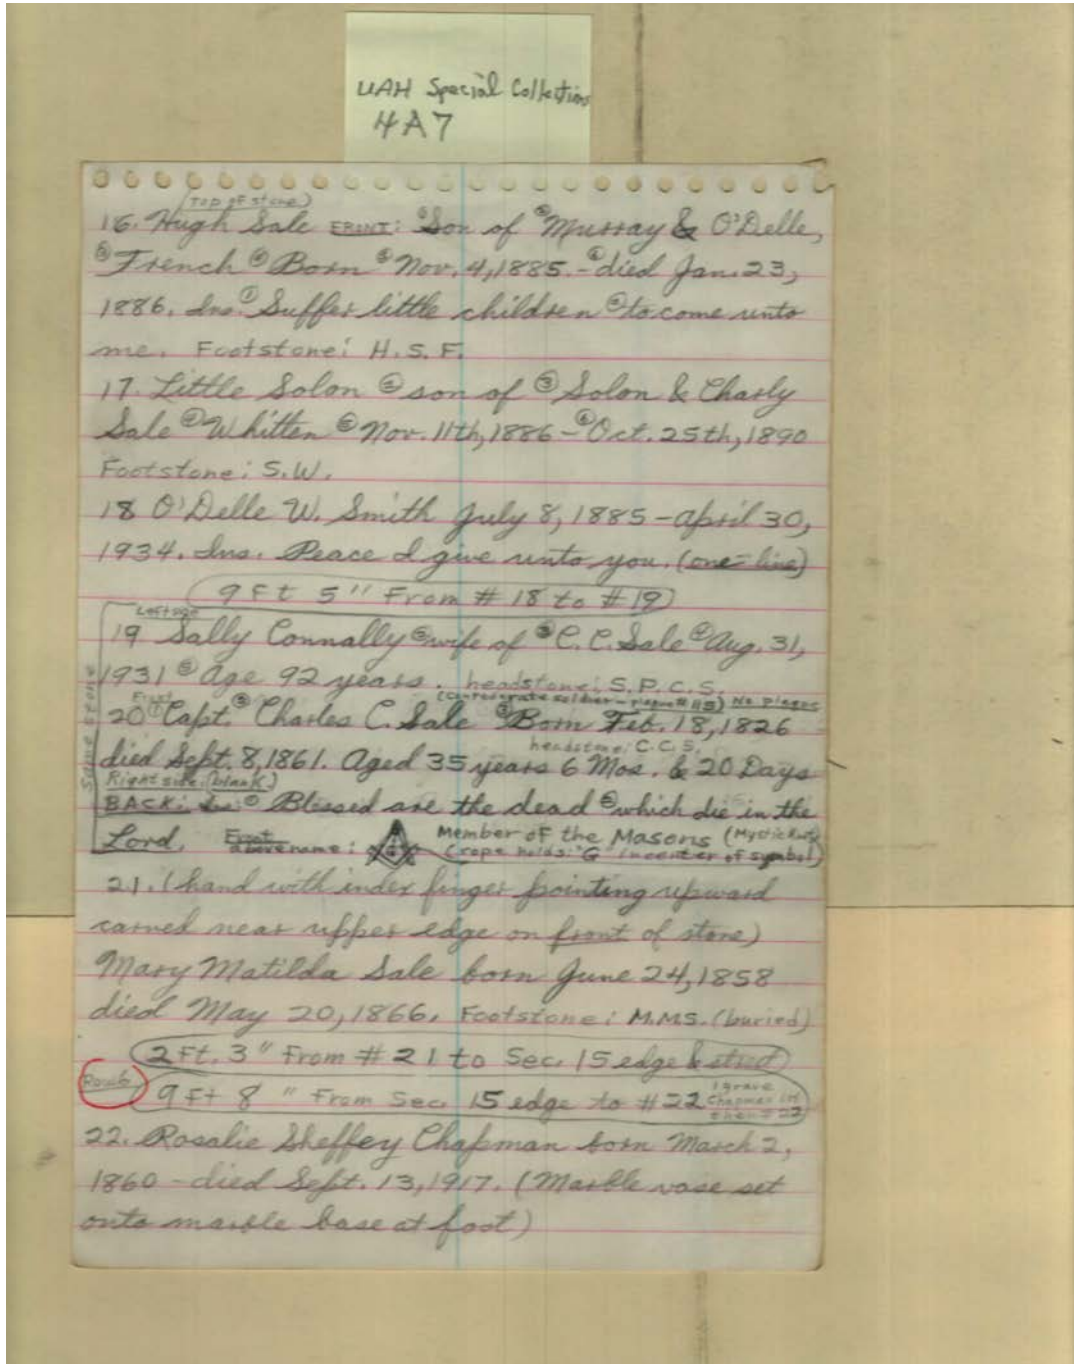 UAH Special Collections
4A7
(Top of stone)
16. Hugh Sale FRONT: ① Son of ② Murray & O'Delle,
③ French ④ Born ⑤ Nov. 4, 1885 - ⑥ died Jan. 23,
1886. Ins. ① Suffer little children ② to come unto
me. Footstone: H.S.F.
17. Little Solon ② son of ③ Solon & Charly
Sale ④ Whitten ⑤ Nov. 11th, 1886 - ⑥ Oct. 25th, 1890
Footstone: S.W.
18 O'Delle W. Smith July 8, 1885 - April 30,
1934. Ins. Peace I give unto you. (one line)
9 Ft 5" From # 18 to # 19
Left side
19 Sally Connally ② wife of ③ C. C. Sale ④ Aug. 31,
1931 ⑤ Age 92 years. headstone: S.P.C.S.
Same stone
Front (Confederate soldier - plaque # 115) No plaque
20 ① Capt. ② Charles C. Sale ③ Born Feb. 18, 1826
headstone: C.C.S.
died Sept. 8, 1861. Aged 35 years 6 Mos. & 20 Days
Right side: (blank)
BACK: Ins: ① Blessed are the dead ② which die in the
Lord. Front above name: G Member of the Masons (Mystic
(rope holds "G" in center of symbol)
21. (hand with index finger pointing upward
carved near upper edge on front of stone)
Mary Matilda Sale born June 24, 1858
died May 20, 1866. Footstone: M.M.S. (buried)
2 Ft. 3" From # 21 to Sec. 15 edge &
Row 6
9 Ft 8" From Sec. 15 edge to # 22 1 grave
Chapman lot
then # 22
22. Rosalie Sheffey Chapman born March 2,
1860 - died Sept. 13, 1917. (Marble vase set
onto marble base at foot)